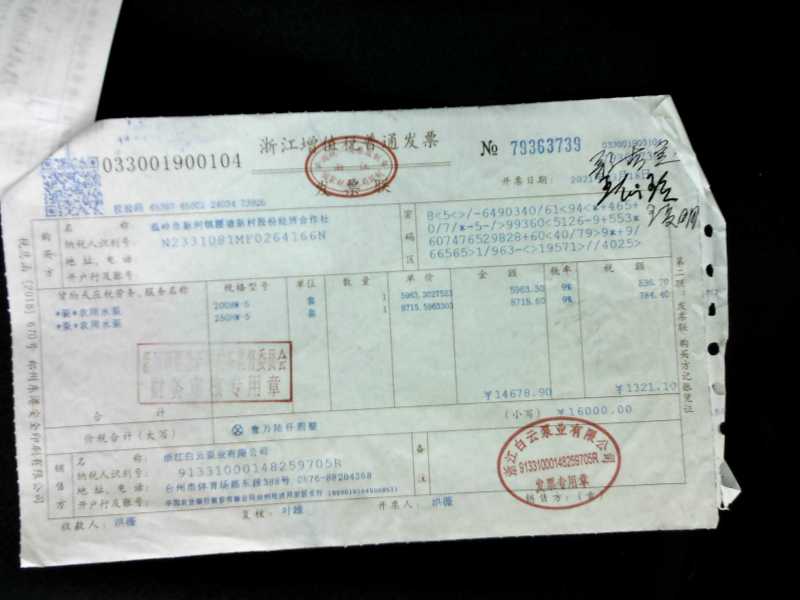 033001900104
浙江增值税普通发票
发票联
№ 79363739
033001900104
开票日期:
校验码
购买方
名称:
纳税人识别号: N2331081MF0264166N
地址、电话:
开户行及账号:
密码区
8<5<>/-6490340/61<94<+465+
0/7/*-5-/>99360<5126-9+553*
607476529828+60<40/79>9*+9/
66565>1/963-<>19571>//4025>
货物或应税劳务、服务名称 规格型号 单位 数量 单价 金额 税率 税额
*泵*农用水泵 200HW-5 套 1 5963.3027523 5963.30 9% 536.70
*泵*农用水泵 250HW-5 套 1 8715.5963303 8715.60 9% 784.40
财务 专用章
合计 ¥14678.90 ¥1321.10
价税合计(大写) 壹万陆仟圆整 (小写) ¥16000.00
销售方
名称: 浙江白云泵业有限公司
纳税人识别号: 91331000148259705R
地址、电话: 台州市体育场路东段388号 0576-88204368
开户行及账号:
备注
浙江白云泵业有限公司
91331000148259705R
发票专用章
收款人: 洪薇
复核: 叶雄
开票人: 洪薇
销售方:(章)
第二联:发票联 购买方记账凭证